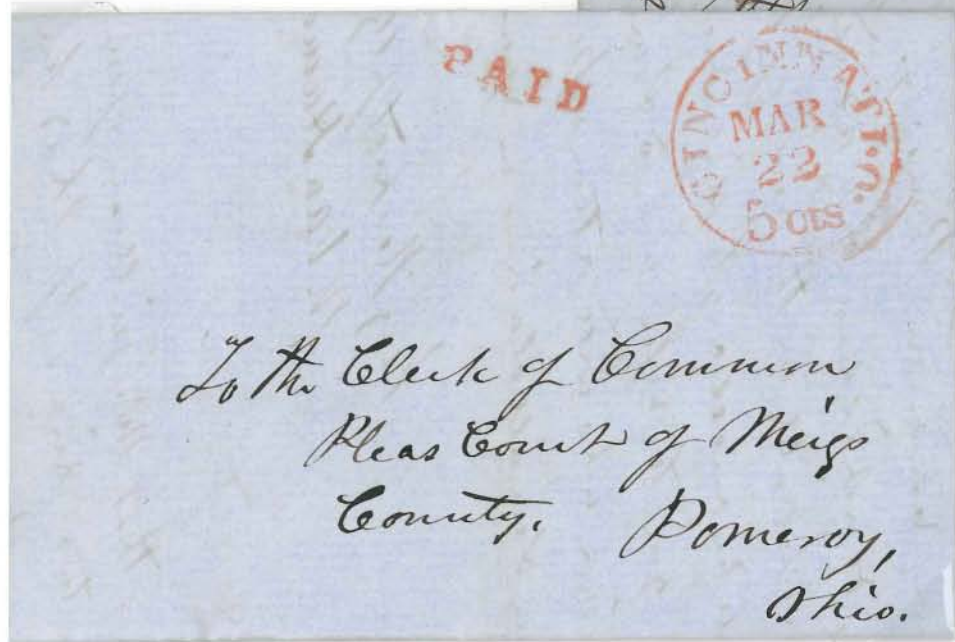 PAID
CINCINNATI.O.
MAR
22
5 cts
To the Clerk of Common
Pleas Court of Meigs
County. Pomeroy,
Ohio.